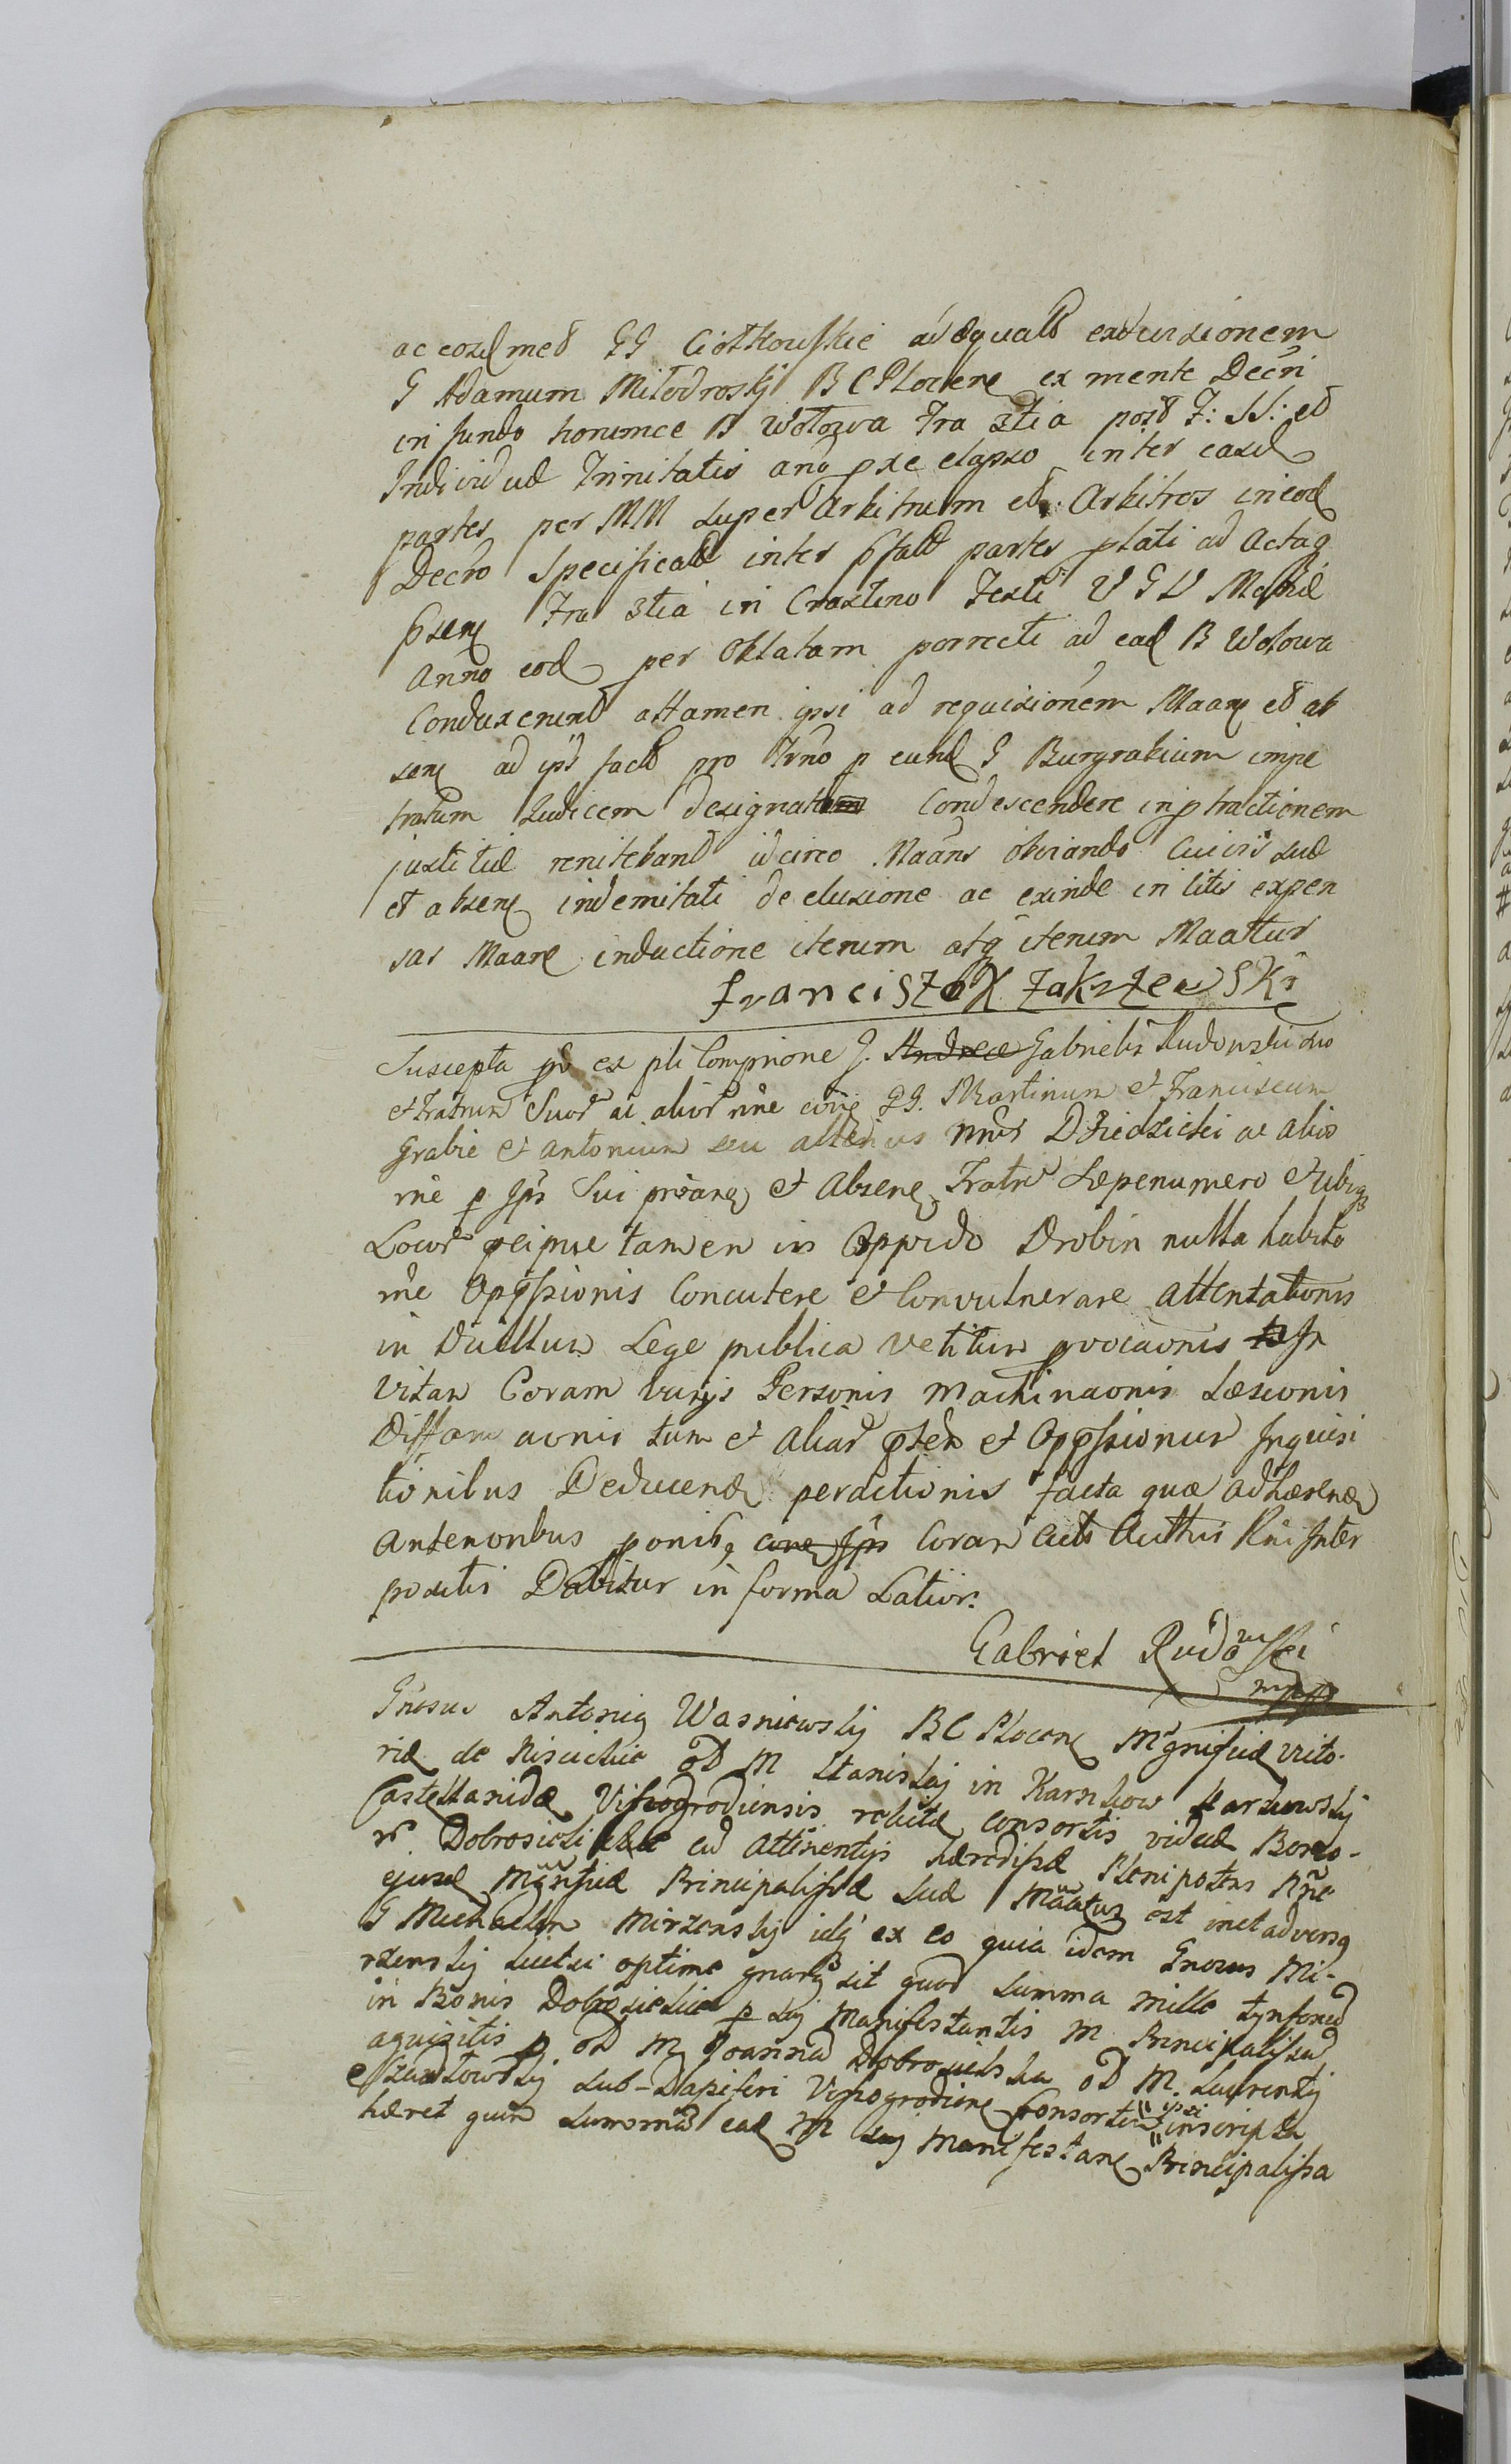 ac eosd med GG Ciotkowskie adæquatt excursionem
G Adamum Miłodroskij B C Plocens ex mente Decri
in fundo honumce B Wołowa Fra 3tia post F: SS: et
Individuæ Trinitatis ano pxe elapso inter easd
partes per MM super Arbitrum et Arbitros in eod
Decro Specificatt inter pfatt partes plati ad Actaq
psens Fra 3tia in Crastino Festi V G V Mariæ
Anno eod per Oblatam porrecti ad ead B Wołowa
Conduxerunt attamen ipsi ad requisionem Maans et ab
sens ad ipst fact pro Trno p eund G Burgrabium impe
tratum Judicem designat Condescendere in ptractionem
justitiæ renitebant idcirco Maans obviando cuivis suæ
et absens indemitati de elusione ac exinde in litis expen
sas Maans inductione iterum atq iterum Maattur
Franciszek Zakrzewski
Suscepta pt ex pli Compnione G. Andreæ Gabrielis Rudowski suo
et Fratrum Suor ac alior nne coñe GG. Martinum et Franciscum
Grabie et Antonium seu alterius nnis Dziedzicki ac alios
nne p Ips Sui psans et Absens Fratris Sæpenumero et ubiq
Locor pcipue tamen in Oppido Drobin nulla habita
rne Oppssionis Concutere et Convulnerare attentationis
in Duellum Lege publica vetitum provocaonis In
vitam Coram varijs Personis machinaonis Læsionis
Diffamaonis tum et aliar ptens et Oppssionum Inquisi
tionibus Deducend peractionis facta quæ adhærend
anterioribus ponib, cons Ips Coram Acts Authis Rni Inter
positis Dabitur in forma Latior.
Gabriel Rudowski
mpp
Gnosus Antonig Wasniewskij B C Plocens Mgnificæ Victo-
riæ de Kisielskie oD M Stanislaj in Karnkow Karnkowskij
Castellanidæ Vissogrodiensis relictæ consortis viduæ Bono-
r Dobrosielice cu attinentijs hæredissæ Plenipotens Nñe
ejusd Mgnficæ Principalissæ suæ Maatus est inet adversq
G Michaelem Mirzenskij idq ex eo quia idem Gnosus Mi-
rzenskij licet sui optime gnarq sit quod summa mille tynforum
in Bonis Dobrosielice p M Manifestantis M Principalissam
aquisitis p oD M Joannam Dobrosielska oD M. Laurentij
Szantowskij Sub-Dapiferi Vissogrodiens Consortem ipsi inscripta
hæret quam summam ead M Manifestans Principalissa